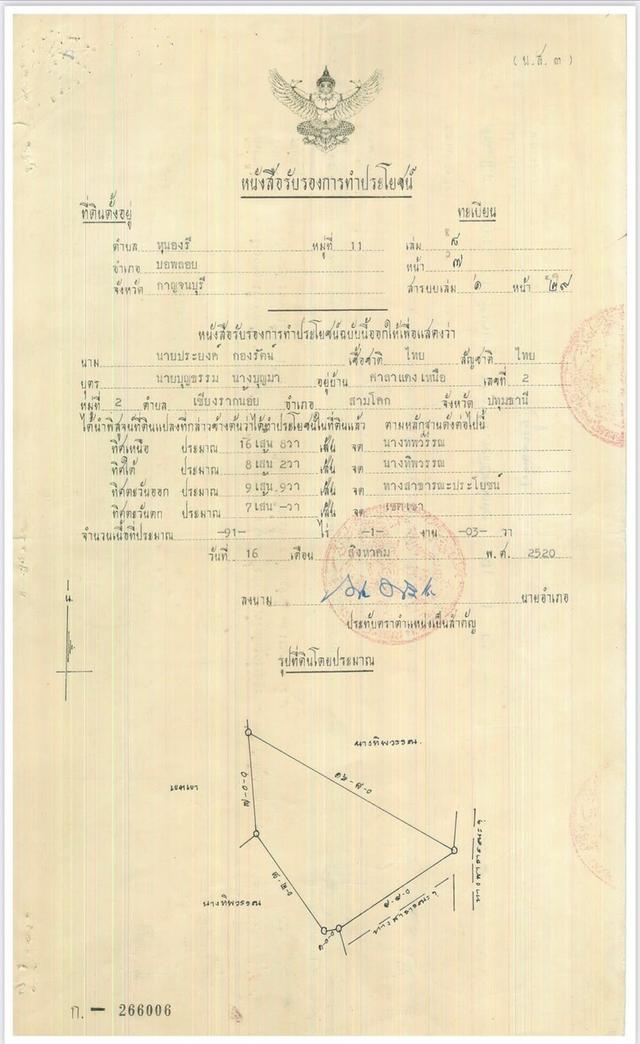 (น.ส. ๓)
หนังสือรับรองการทำประโยชน์
ที่ดินตั้งอยู่ ทะเบียน
ตำบล หนองรี หมู่ที่ 11 เล่ม ๕
อำเภอ บอพลอย หน้า ๗
จังหวัด กาญจนบุรี สารบบเล่ม ๑ หน้า ๒๗
หนังสือรับรองการทำประโยชน์ฉบับนี้ออกให้เพื่อแสดงว่า
นาม นายประยงค์ กองรัตน์ เชื้อชาติ ไทย สัญชาติ ไทย
บุตร นายบุญธรรม นางบุญมา อยู่บ้าน ศาลาแดงเหนือ เลขที่ 2
หมู่ที่ 2 ตำบล เชียงรากน้อย อำเภอ สามโคก จังหวัด ปทุมธานี
ได้นำพิสูจน์ที่ดินแปลงที่กล่าวข้างต้นว่าได้ทำประโยชน์ในที่ดินแล้ว ตามหลักฐานดังต่อไปนี้
ทิศเหนือ ประมาณ 16 เส้น 8วา เส้น จด นางทิพวรรณ
ทิศใต้ ประมาณ 8 เส้น 2วา เส้น จด นางทิพวรรณ
ทิศตะวันออก ประมาณ 9 เส้น 9วา เส้น จด ทางสาธารณะประโยชน์
ทิศตะวันตก ประมาณ 7 เส้น -วา เส้น จด เขตเขา
จำนวนเนื้อที่ประมาณ -91- ไร่ -1- งาน -03- วา
วันที่ 16 เดือน สิงหาคม พ.ศ. 2520
ลงนาม นายอำเภอ
ประทับตราตำแหน่งเป็นสำคัญ
น.
รูปที่ดินโดยประมาณ
นางทิพวรรณ.
๑๖-๘-๐
เขตเขา
๗-๐-๐
ทางสาธารณะฯ
๘-๒-๐
นางทิพวรรณ
๙-๙-๐
ทางสาธารณะฯ
๑-๐-๐
ก. - 266006